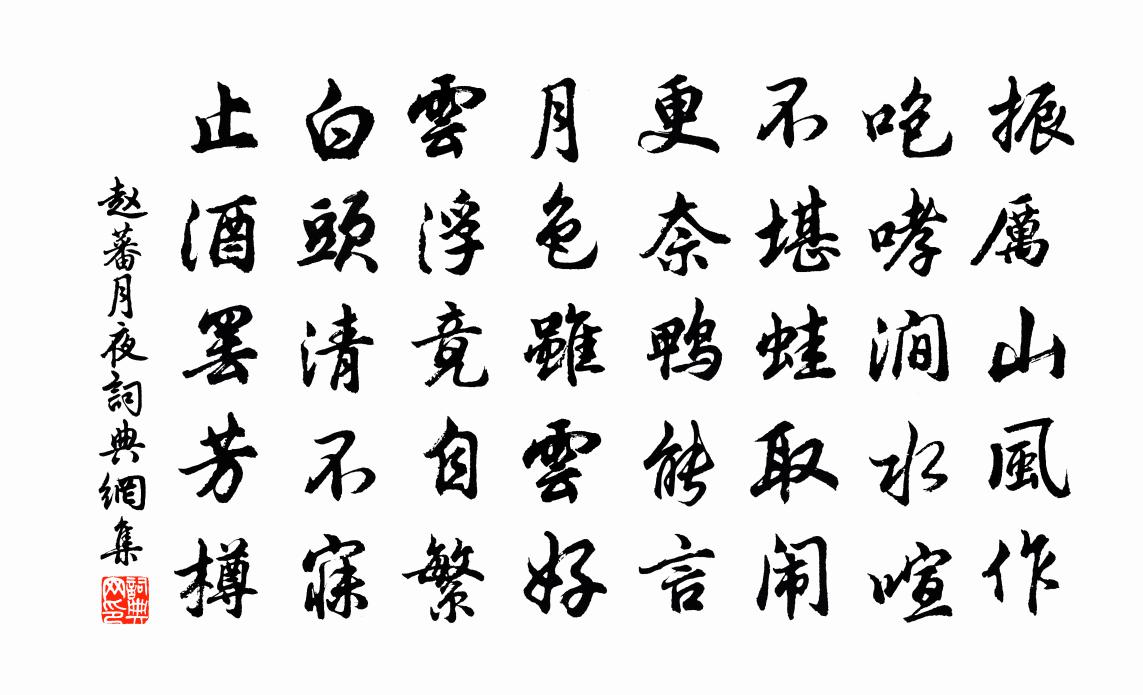 振厲山風作
咆哮澗水喧
不堪蛙取闹
更奈鸭能言
月色雖雲好
雲浮竟自繁
白頭清不寐
止酒罢芳樽
赵蕃月夜詞典網集
詞典网印